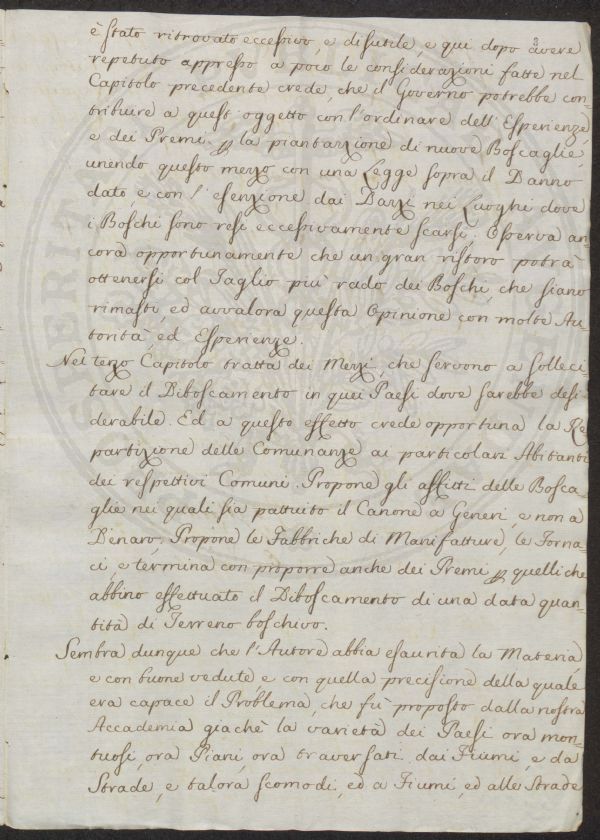 8
è stato ritrovato eccessivo, e disutile, e qui dopo avere
repetuto appresso a poco le considerazioni fatte nel
Capitolo precedente crede, che il Governo potrebbe con-
tribuire a quest'oggetto con l'ordinare dell'Esperienze,
e dei Premi p la piantazione di nuove Boscaglie,
unendo questo mezzo con una Legge sopra il Danno
dato, e con l'esenzione dai Dazzi nei Luoghi dove
i Boschi sono resi eccessivamente scarsi. Osserva an-
cora opportunamente che un gran ristoro potrà
ottenersi col Taglio più rado dei Boschi, che siano
rimasti, ed avvalora questa Opinione con molte Au-
torità, ed Esperienze.
Nel terzo Capitolo tratta dei Mezzi, che servono a solleci-
tare il Diboscamento in quei Paesi dove sarebbe desi-
derabile. Ed a questo effetto crede opportuna la Re-
partizione delle Comunanze ai particolari Abitanti
dei respettivi Comuni. Propone gli affitti delle Bosca-
glie nei quali sia pattuito il Canone a Generi, e non a
Denaro. Propone le Fabbriche di Manifatture, le Forna-
ci, e termina con proporre anche dei Premi p quelli che
abbino effettuato il Diboscamento di una data quan-
tità di Terreno boschivo.
Sembra dunque che l'Autore abbia esaurita la Materia,
e con buone vedute e con quella precisione della quale
era capace il Problema, che fù proposto dalla nostra
Accademia giachè la varietà dei Paesi ora mon-
tuosi, ora Piani, ora traversati dai Fiumi, e da
Strade, e talora scomodi, ed a Fiumi, ed alle Strade